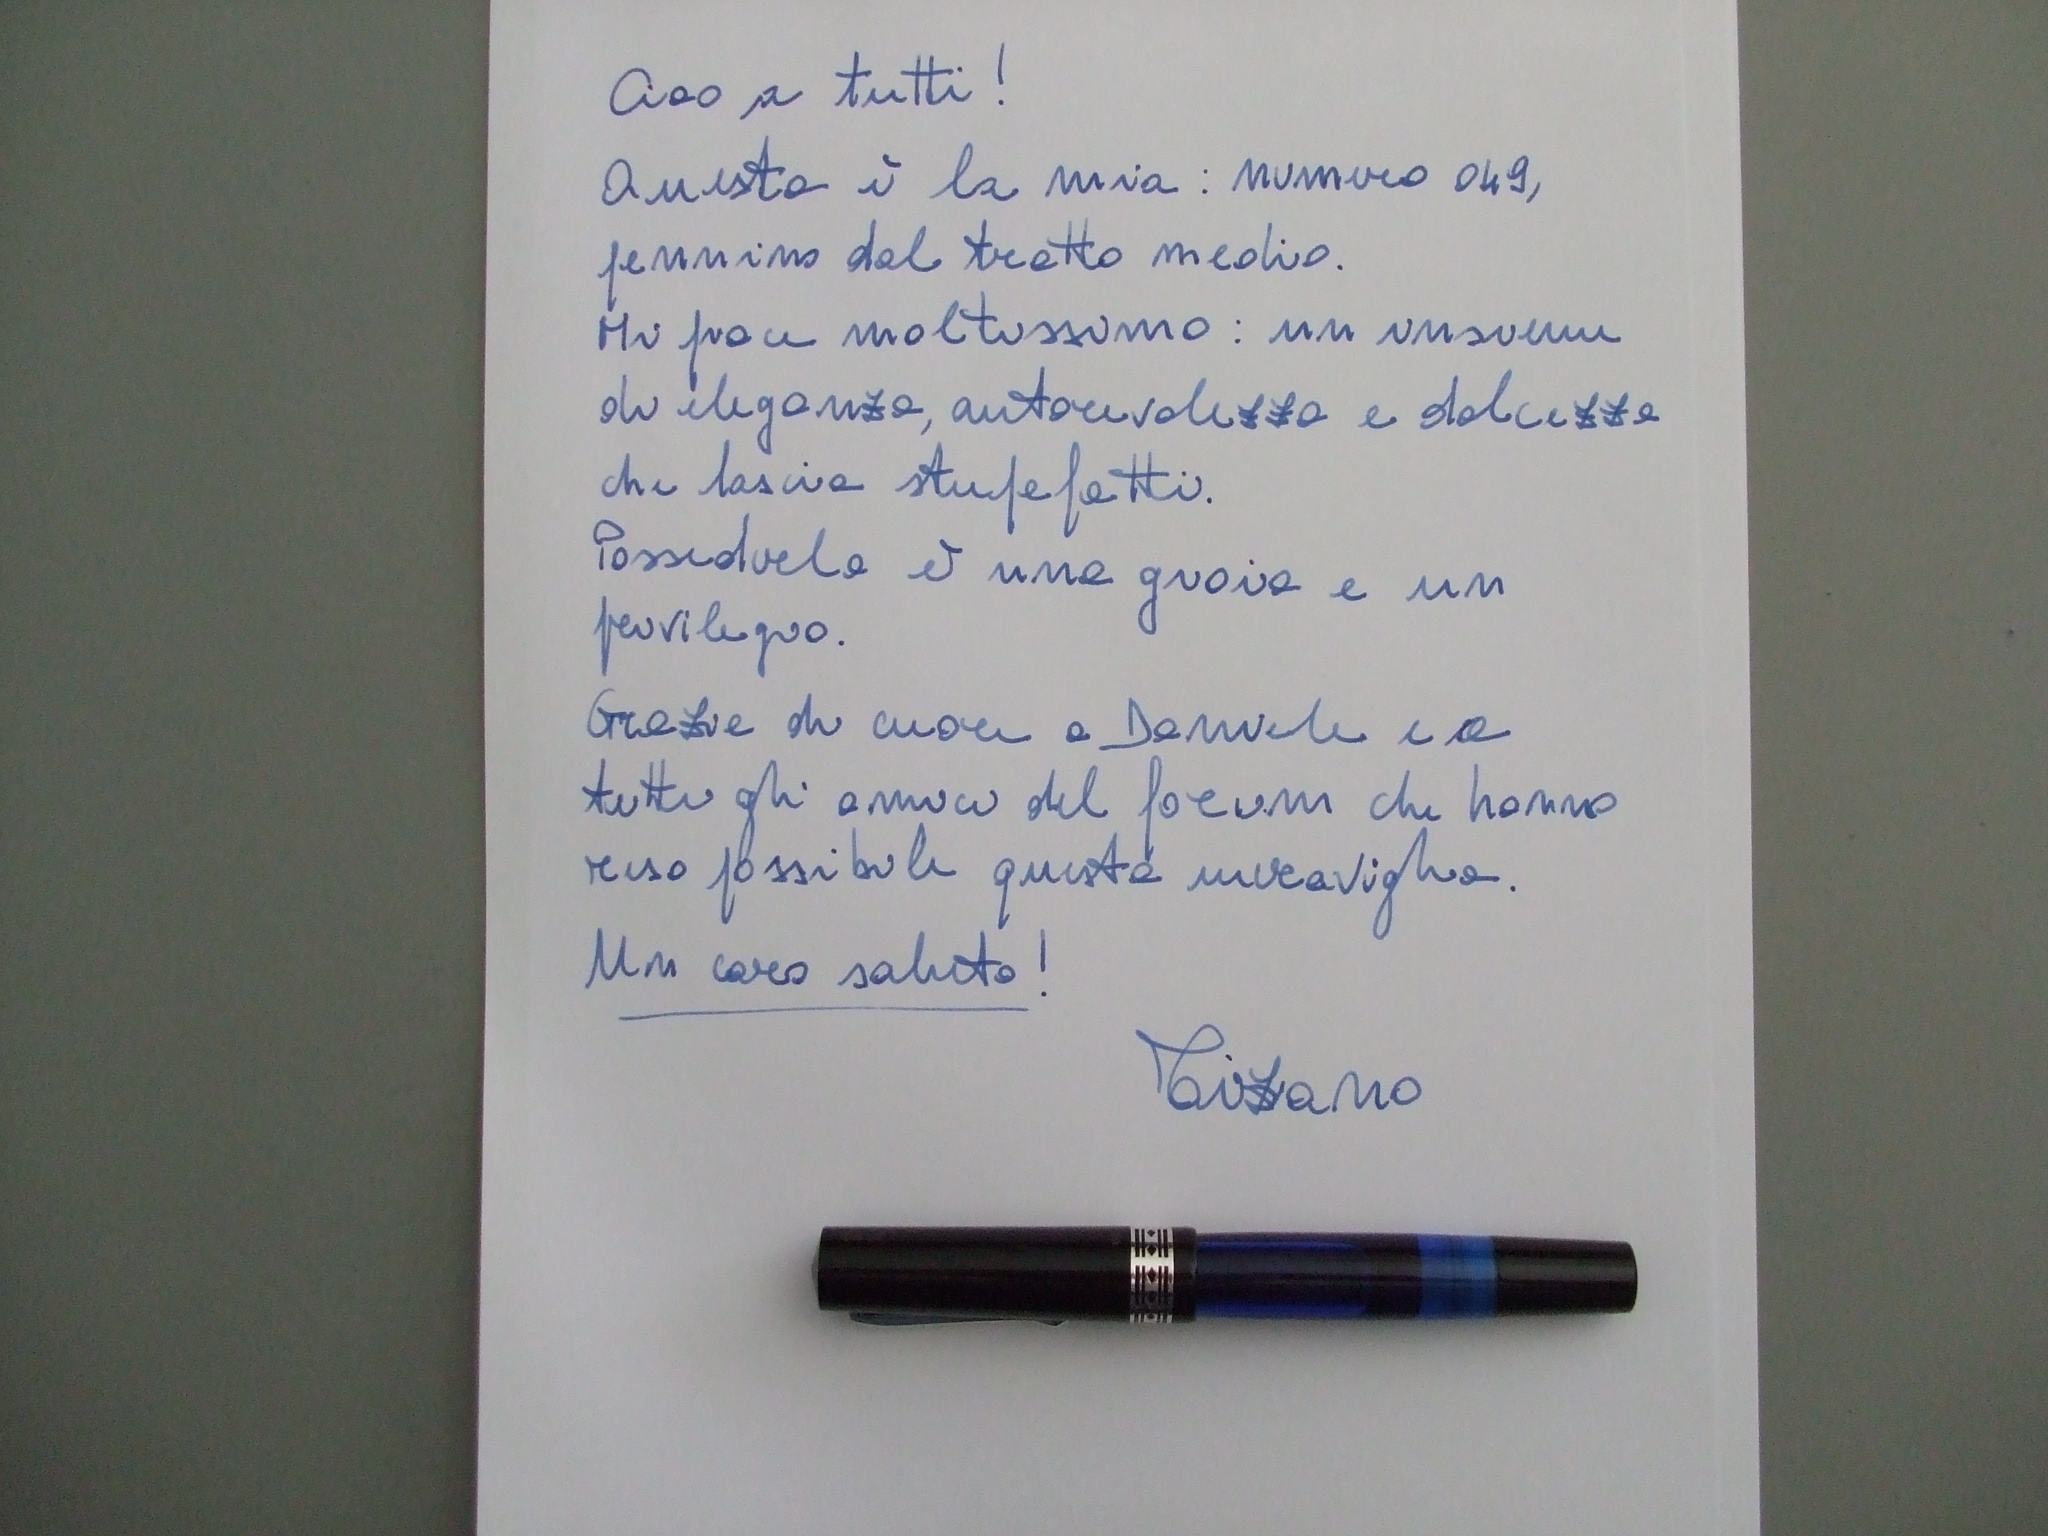 Ciao a tutti!
Questa è la mia: numero 049,
pennino dal tratto medio.
Mi piace moltissimo: un insieme
di eleganza, autorevolezza e dolcezza
che lascia stupefatti.
Possederla è una gioia e un
privilegio.
Grazie di cuore a Daniele e a
tutti gli amici del forum che hanno
reso possibile questa meraviglia.
Un caro saluto!
Tiziano